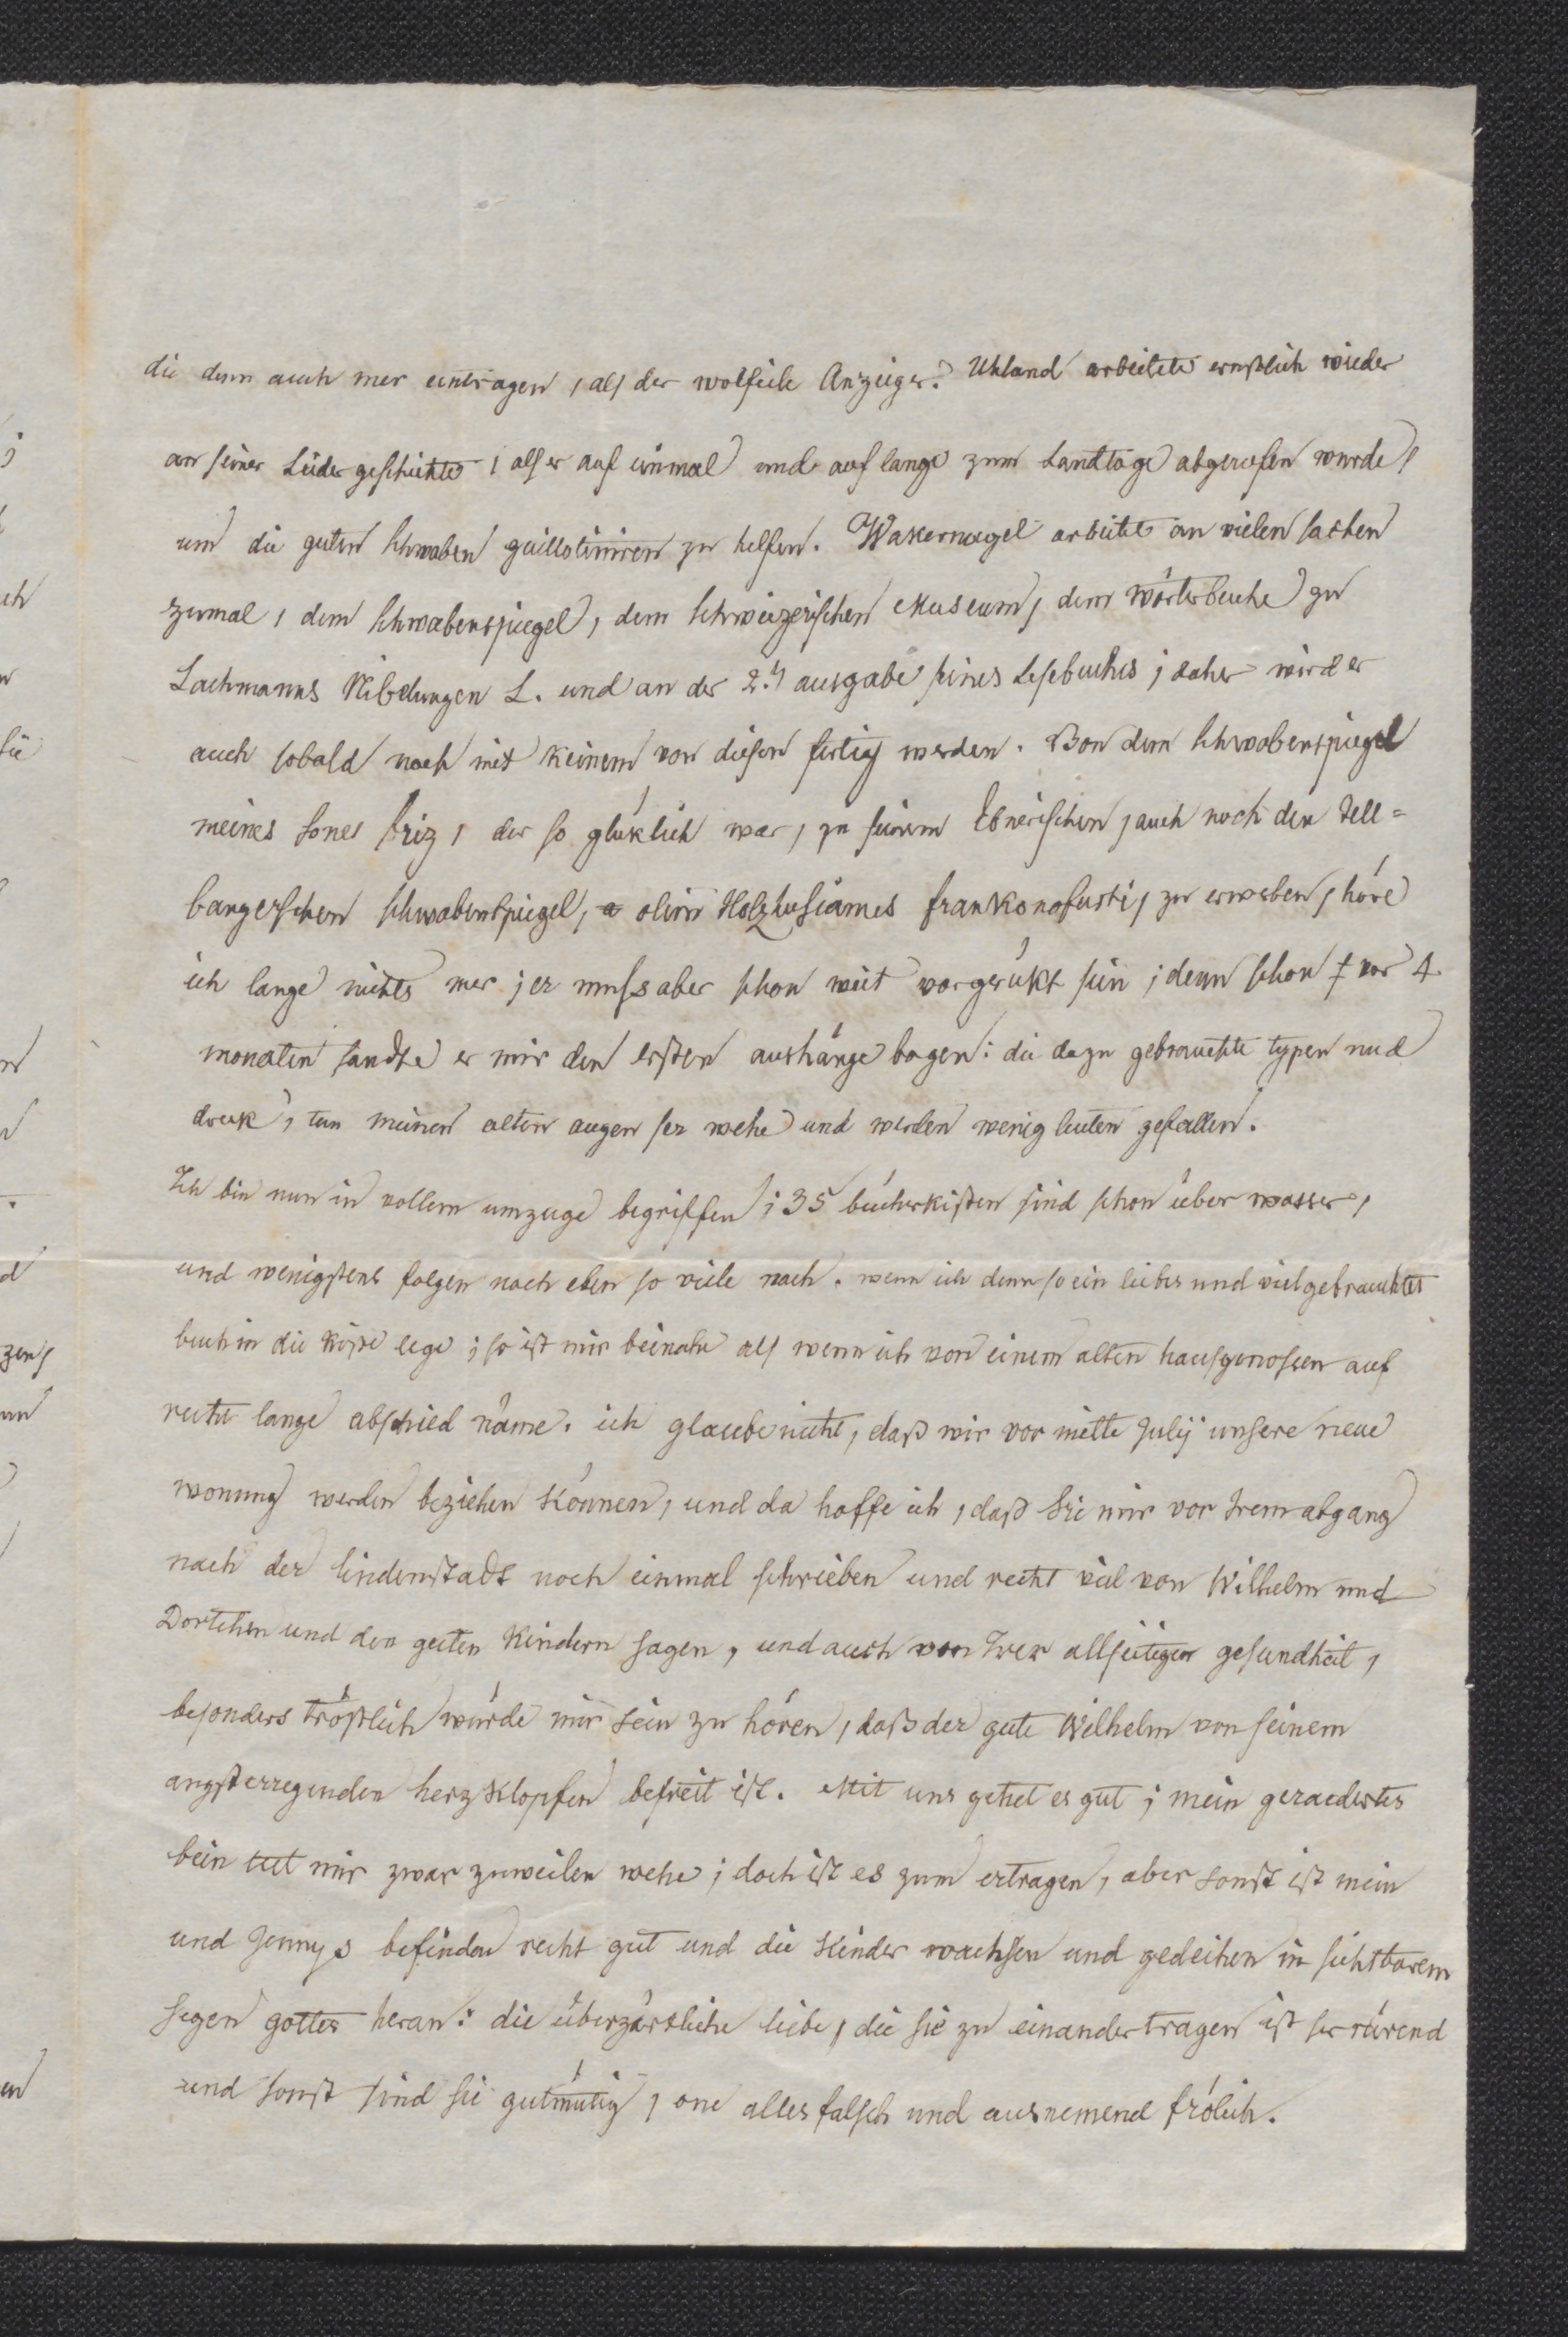 die dem auch mer eintragen, als der wolfeile Anzeiger. Uhland arbeitete ernstlich wieder
an seiner Liedergeschichte, als er auf einmal und auf lange zum Landtage abgerufen wurde,
um die guten Schwaben guillotiniren zu helfen. Wakernagel arbeitet an vielen sachen
zumal, dem Schwabenspiegel, dem Schweizerischen Museum, dem wörterbuche zu
Lachmanns Nibelungen L. und an der 2.n ausgabe seines Lesebuches; daher wird er
auch sobald noch mit keinem von diesen fertig werden. Von dem Schwabenspiegel
meines sones Friz, der so glüklich war, zu seinem Ebnerischen, auch noch den Tell=
bangerschen schwabenspiegel, olim Holzhusiames frankonofurti, zu erwerben, höre
ich lange nichts mer; er muss aber schon weit vorgerükt sein; denn schon vor 4
monaten sandte er mir den ersten aushänge bogen: die dazu gebrauchte typen und
druk, tun meinen alten augen ser wehe und werden wenig leuten gefallen.
Ich bin nun in vollem umzuge begriffen; 35 bücherkisten sind schon über wasser,
und wenigstens folgen noch eben so viele nach. wenn ich denn so ein liebes und vielgebrauchtes
buch in die kiste lege; so ist mir beinahe als wenn ich von einem alten hausgenossen auf
recht lange abschied näme. ich glaube nicht, daß wir vor mitte Julij unsere neue
wonung werden beziehen können, und da hoffe ich, daß Sie mir vor Irem abgang
nach der lindenstadt noch einmal schrieben und recht viel von Wilhelm und
Dortchen und den guten Kindern sagen, und auch von Irer allseitigen gesundheit,
besonders tröstlich würde mir sein zu hören, daß der gute Wilhelm von seinem
angsterregenden herzklopfen befreit ist. Mit uns gehet es gut; mein geraedertes
bein tut mir zwar zuweilen wehe; doch ist es zum ertragen, aber sonst ist mein
und Jennys befinden recht gut und die Kinder wachsen und gedeihen in sichtbarem
segen gottes heran: die überzärtliche liebe, die sie zu einander tragen ist ser rürend
und sonst sind sie gutmütig, one alles falsch und ausnemend frölich.